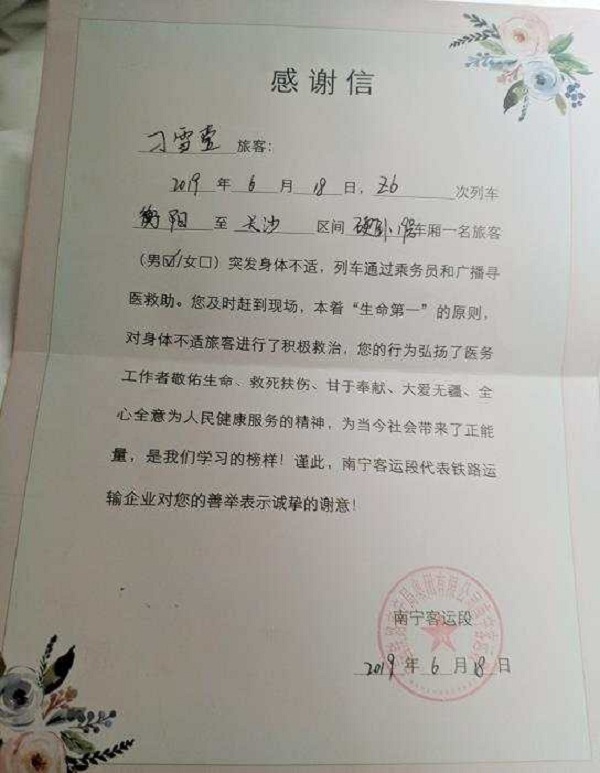 感谢信
刁雪莹 旅客：
2019 年 6 月 18 日，Z6 次列车
衡阳 至 长沙 区间 硬卧1号车厢一名旅客
（男☑/女□）突发身体不适，列车通过乘务员和广播寻
医救助。您及时赶到现场，本着“生命第一”的原则，
对身体不适旅客进行了积极救治，您的行为弘扬了医务
工作者敬佑生命、救死扶伤、甘于奉献、大爱无疆、全
心全意为人民健康服务的精神，为当今社会带来了正能
量，是我们学习的榜样！谨此，南宁客运段代表铁路运
输企业对您的善举表示诚挚的谢意！
南宁客运段
2019 年 6 月 18 日